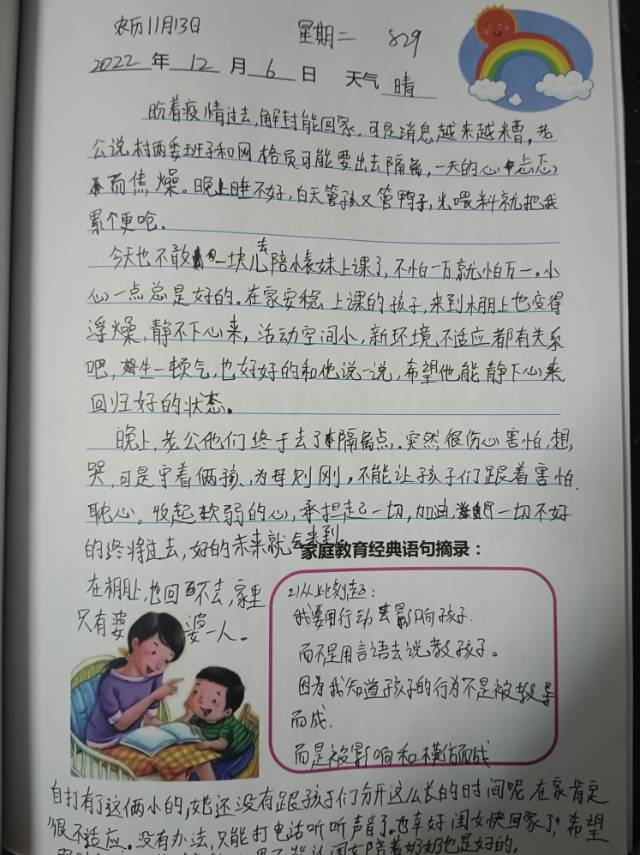 农历11月13日 星期二 829
2022 年 12 月 6 日 天气 晴
盼着疫情过去,解封能回家,可是消息越来越糟,老
公说村两委班子和网格员可能要出去隔离,一天的心忐忑
而焦燥。晚上睡不好,白天管孩又管鸭子,光喂料就把我
累个更呛。
今天也不敢一块儿去陪小表妹上课了,不怕一万就怕万一。小
心一点总是好的。在家安稳上课的孩子,来到棚上也变得
浮燥,静不下心来,活动空间小,新环境,不适应都有关系
吧,生一顿气,也好好的和他说一说,希望他能静下心来
回归好的状态。
晚上,老公他们终于去了隔离点。突然很伤心害怕,想
哭,可是守着俩孩,为母则刚,不能让孩子们跟着害怕
耽心。收起软弱的心,承担起一切,加油,一切不好
的终将过去,好的未来就会来到。
家庭教育经典语句摘录:
在棚上,也回不去,家里
只有婆婆一人。
2)从此刻起:
我要用行动去影响孩子.
而不是用言语去说教孩子。
因为我知道孩子的行为不是被教导
而成.
而是被影响和模仿而成
自打有了这俩小的,她还没有跟孩子们分开这么长的时间呢,在家肯定
很不适应。没有办法,只能打电话听听声音了。也幸好闺女快回家了,希望